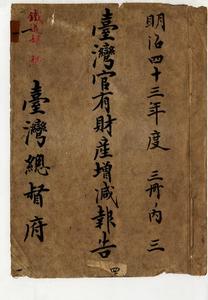 明治四十三年度 三冊ノ内 三
臺灣官有財産增減報告
臺灣總督府
四